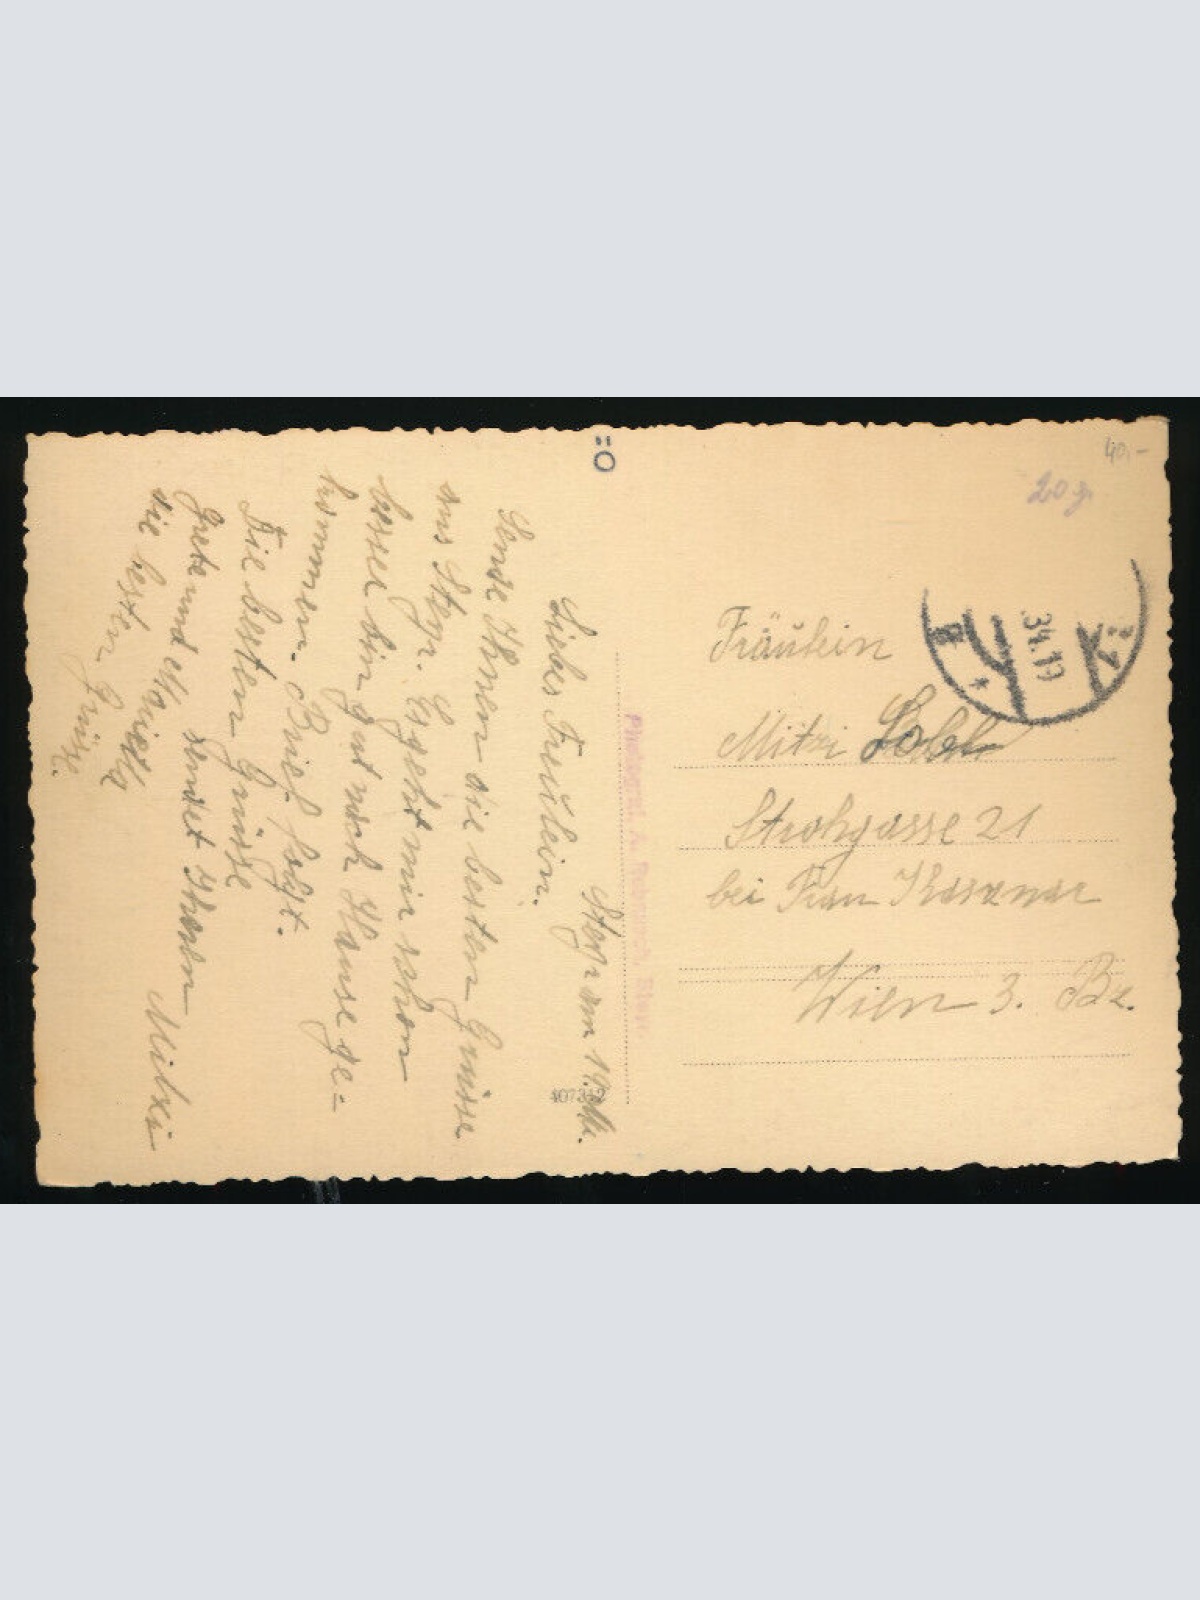 40,-
20 g.
34.19
Fräulein
Mitzi Lobl
Strohgasse 21
bei Frau Kasznar
Wien 3. Bz.
Photograf. A. Steyr.
407312
Steyr am
Liebes Freulein.
Sende Ihnen die besten Grüsse
aus Steyr. Es geht mir schon
besser bin gut nach Hause ge=
kommen. Brief folgt.
Die besten Grüsse
Mitzi
Grete und Mariella sendet Ihnen
die besten Grüsse.